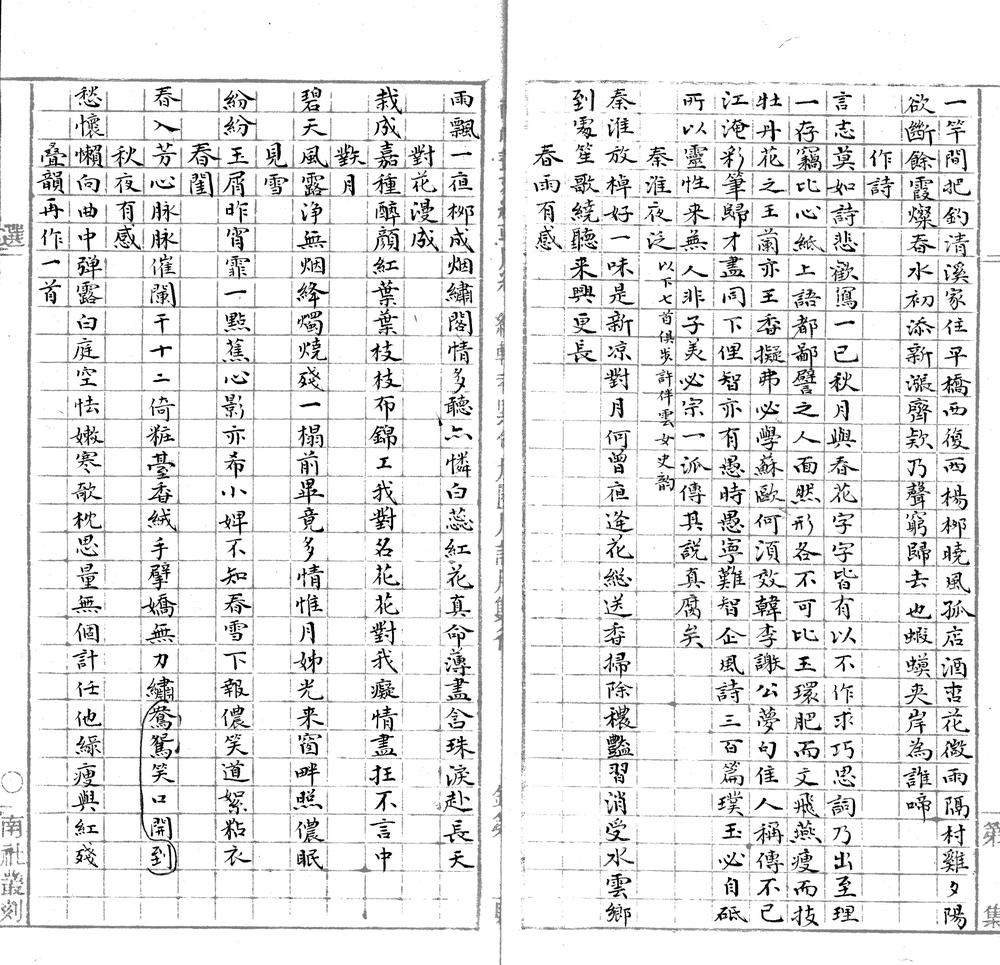 一竿間把釣清溪家住平橋西復西楊柳曉風孤店酒杏花微雨隔村雞夕陽
欲斷餘霞燦春水初添新漲齊欵乃聲窮歸去也蝦蟆夾岸為誰啼
作詩
言志莫如詩悲歡寫一已秋月與春花字字皆有以不作求巧思詞乃出至理
一存竊比心紙上語都鄙譬之人面然形各不可比玉環肥而文飛燕瘦而技
牡丹花之王蘭亦王香擬弗必學蘇歐何須效韓李謝公夢句佳人稱傳不已
江淹彩筆歸才盡同下俚智亦有愚時愚寧難智企風詩三百篇璞玉必自砥
所以靈性来無人非子美必宗一派傳其說真腐矣
秦淮夜泛 以下七首俱步許伴雲女史韵
秦淮放棹好一味是新凉對月何曾夜逢花総送香掃除穠豔習消受水雲鄉
到處笙歌繞聽来興更長
春雨有感
雨飄一夜柳成烟繡閣情多聽亦憐白蕊紅花真命薄盡含珠淚赴長天
對花漫成
栽成嘉種醉顏紅葉葉枝枝布錦工我對名花花對我癡情盡狂不言中
對月
碧天風露浄無烟絳燭燒殘一榻前畢竟多情惟月姊光来窗畔照儂眠
見雪
紛紛玉屑昨宵霏一點蕉心影亦希小婢不知春雪下報儂笑道絮粘衣
春閨
春入芳心脉脉催闌干十二倚粧臺香絨手擘嬌無力繡鴛鴦笑口開到
秋夜有感
愁懷懶向曲中弹露白庭空怯嫩寒欹枕思量無個計任他綠瘦與紅殘
叠韻再作一首
選
南社叢刻
第
集